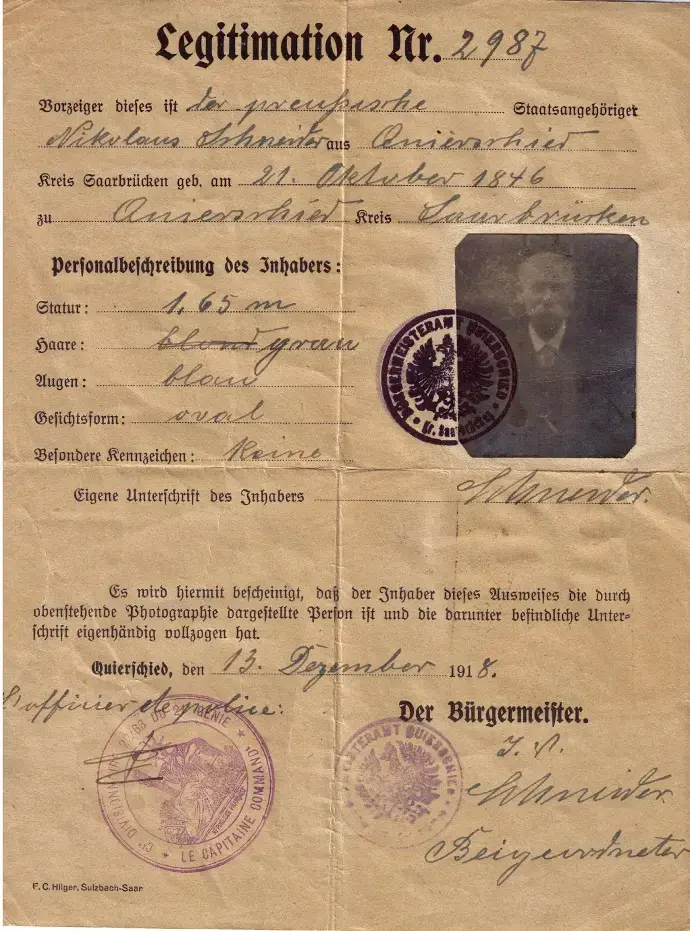 Legitimation Nr. 2987
Vorzeiger dieses ist der preußische Staatsangehöriger
Nikolaus Schneider aus Quierschied
Kreis Saarbrücken geb. am 21. Oktober 1846
zu Quierschied Kreis Saarbrücken
Personalbeschreibung des Inhabers:
Statur: 1,65 m
Haare: blond grau
Augen: blau
Gesichtsform: oval
Besondere Kennzeichen: keine
BÜRGERMEISTERAMT QUIERSCHIED
Eigene Unterschrift des Inhabers Schneider.
Es wird hiermit bescheinigt, daß der Inhaber dieses Ausweises die durch
obenstehende Photographie dargestellte Person ist und die darunter befindliche Unter-
schrift eigenhändig vollzogen hat.
Quierschied, den 13. Dezember 1918.
L'officier de police:
Der Bürgermeister.
J. V.
Schneider
Beigeordneter
DU GENIE
LE CAPITAINE COMMANDT
F. C. Hilger, Sulzbach-Saar